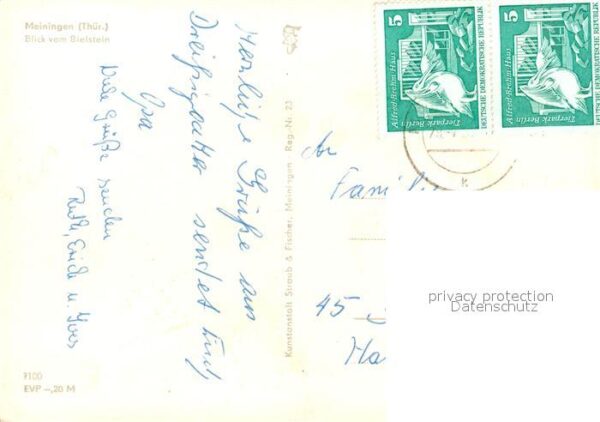 Meiningen (Thür.)
Blick vom Bielstein
Herzliche Grüße aus
Dreißigacker sendet Euch
Opa
Viele Grüße senden
Ruth, Erich u. Yves
9100
EVP –,20 M
Kunstanstalt Straub & Fischer, Meiningen. Reg.-Nr. 23
5
Alfred-Brehm-Haus
Tierpark Berlin
DEUTSCHE DEMOKRATISCHE REPUBLIK
5
Alfred-Brehm-Haus
Tierpark Berlin
DEUTSCHE DEMOKRATISCHE REPUBLIK
An
Famili
45
Ha
privacy protection
Datenschutz